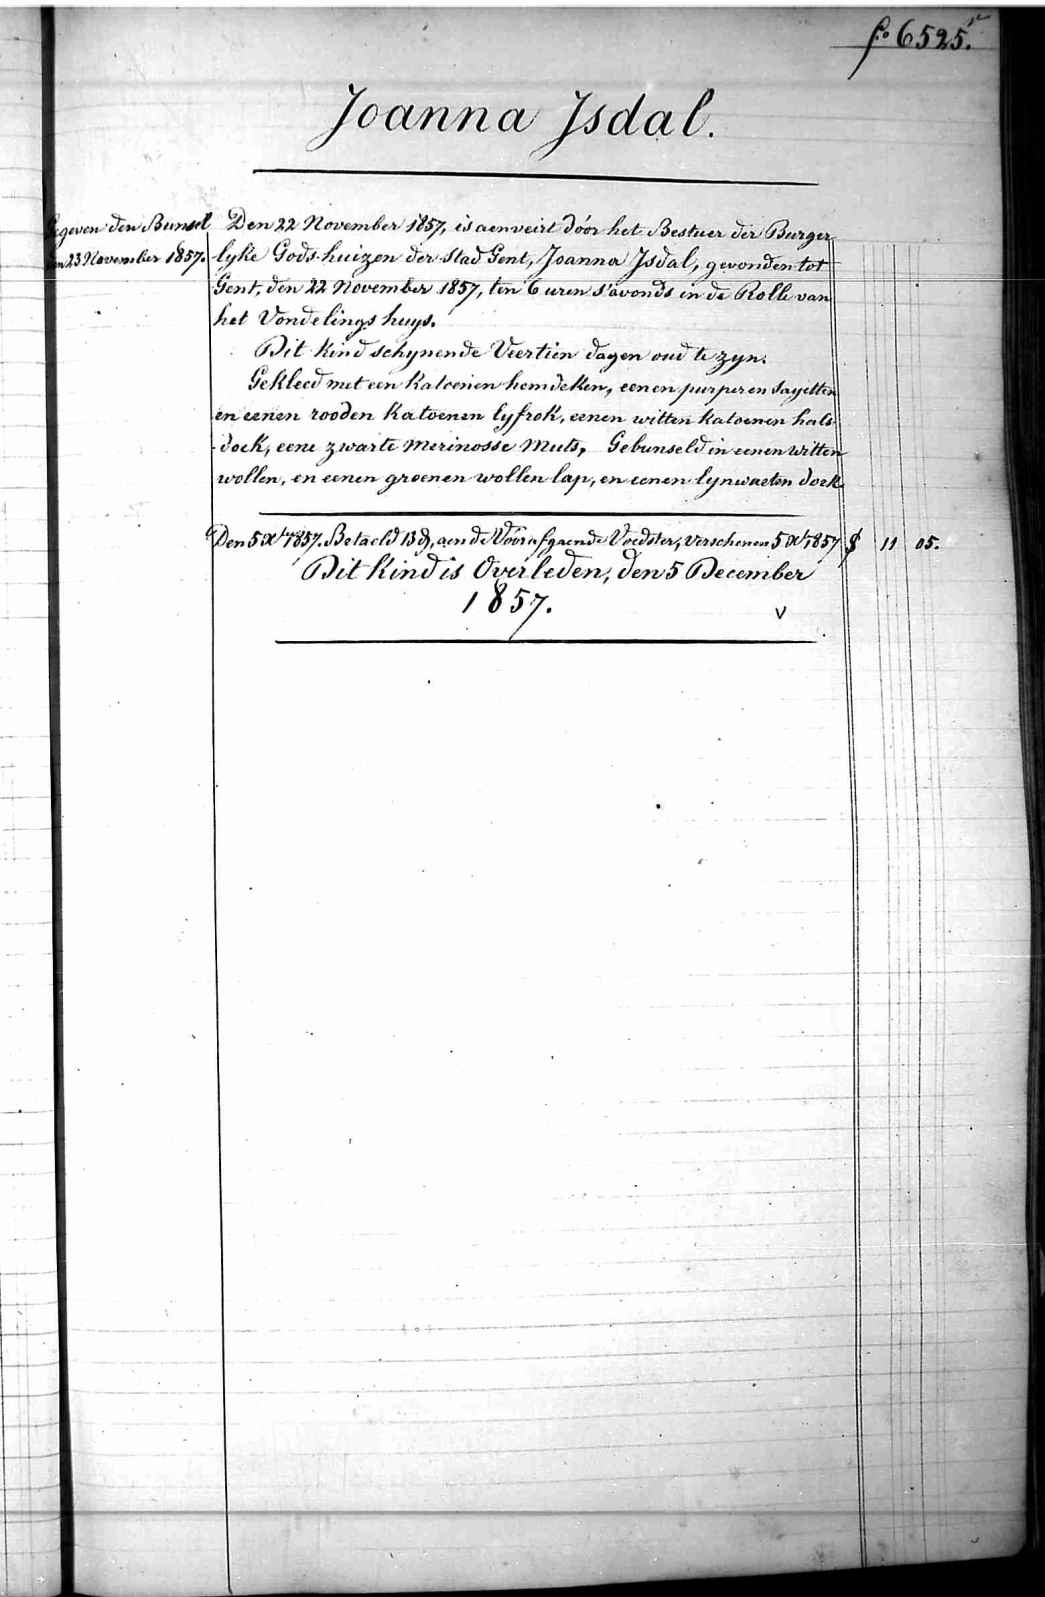 fo 6525.
Joanna Isdal.
Gegeven den Bunsel
den 23 November 1857.
Den 22 November 1857, is aenveirt dóór het Bestuer der Burger
lyke Gods-huizen der Stad Gent, Joanna Isdal, gevonden tot
Gent, den 22 November 1857, ten 6 uren s'avonds in de Rolle van
het Vondelings huys.
Dit kind schynende Veertien dagen oud te zyn.
Gekleed met een Katoenen hemdeken, eenen purperen sayetten
en eenen rooden Katoenen lyfrok, eenen witten katoenen hals-
doek, eene zwarte merinosse muts, Gebunseld in eenen witten
wollen, en eenen groenen wollen lap, en eenen lynwaeten doek
Den 5 Xr 1857. Betaeld 13 d, aen de Voorafgaende Voedster, verschenen 5 Xr 1857 $ 11 05.
Dit kind is Overleden, den 5 December
1857. v